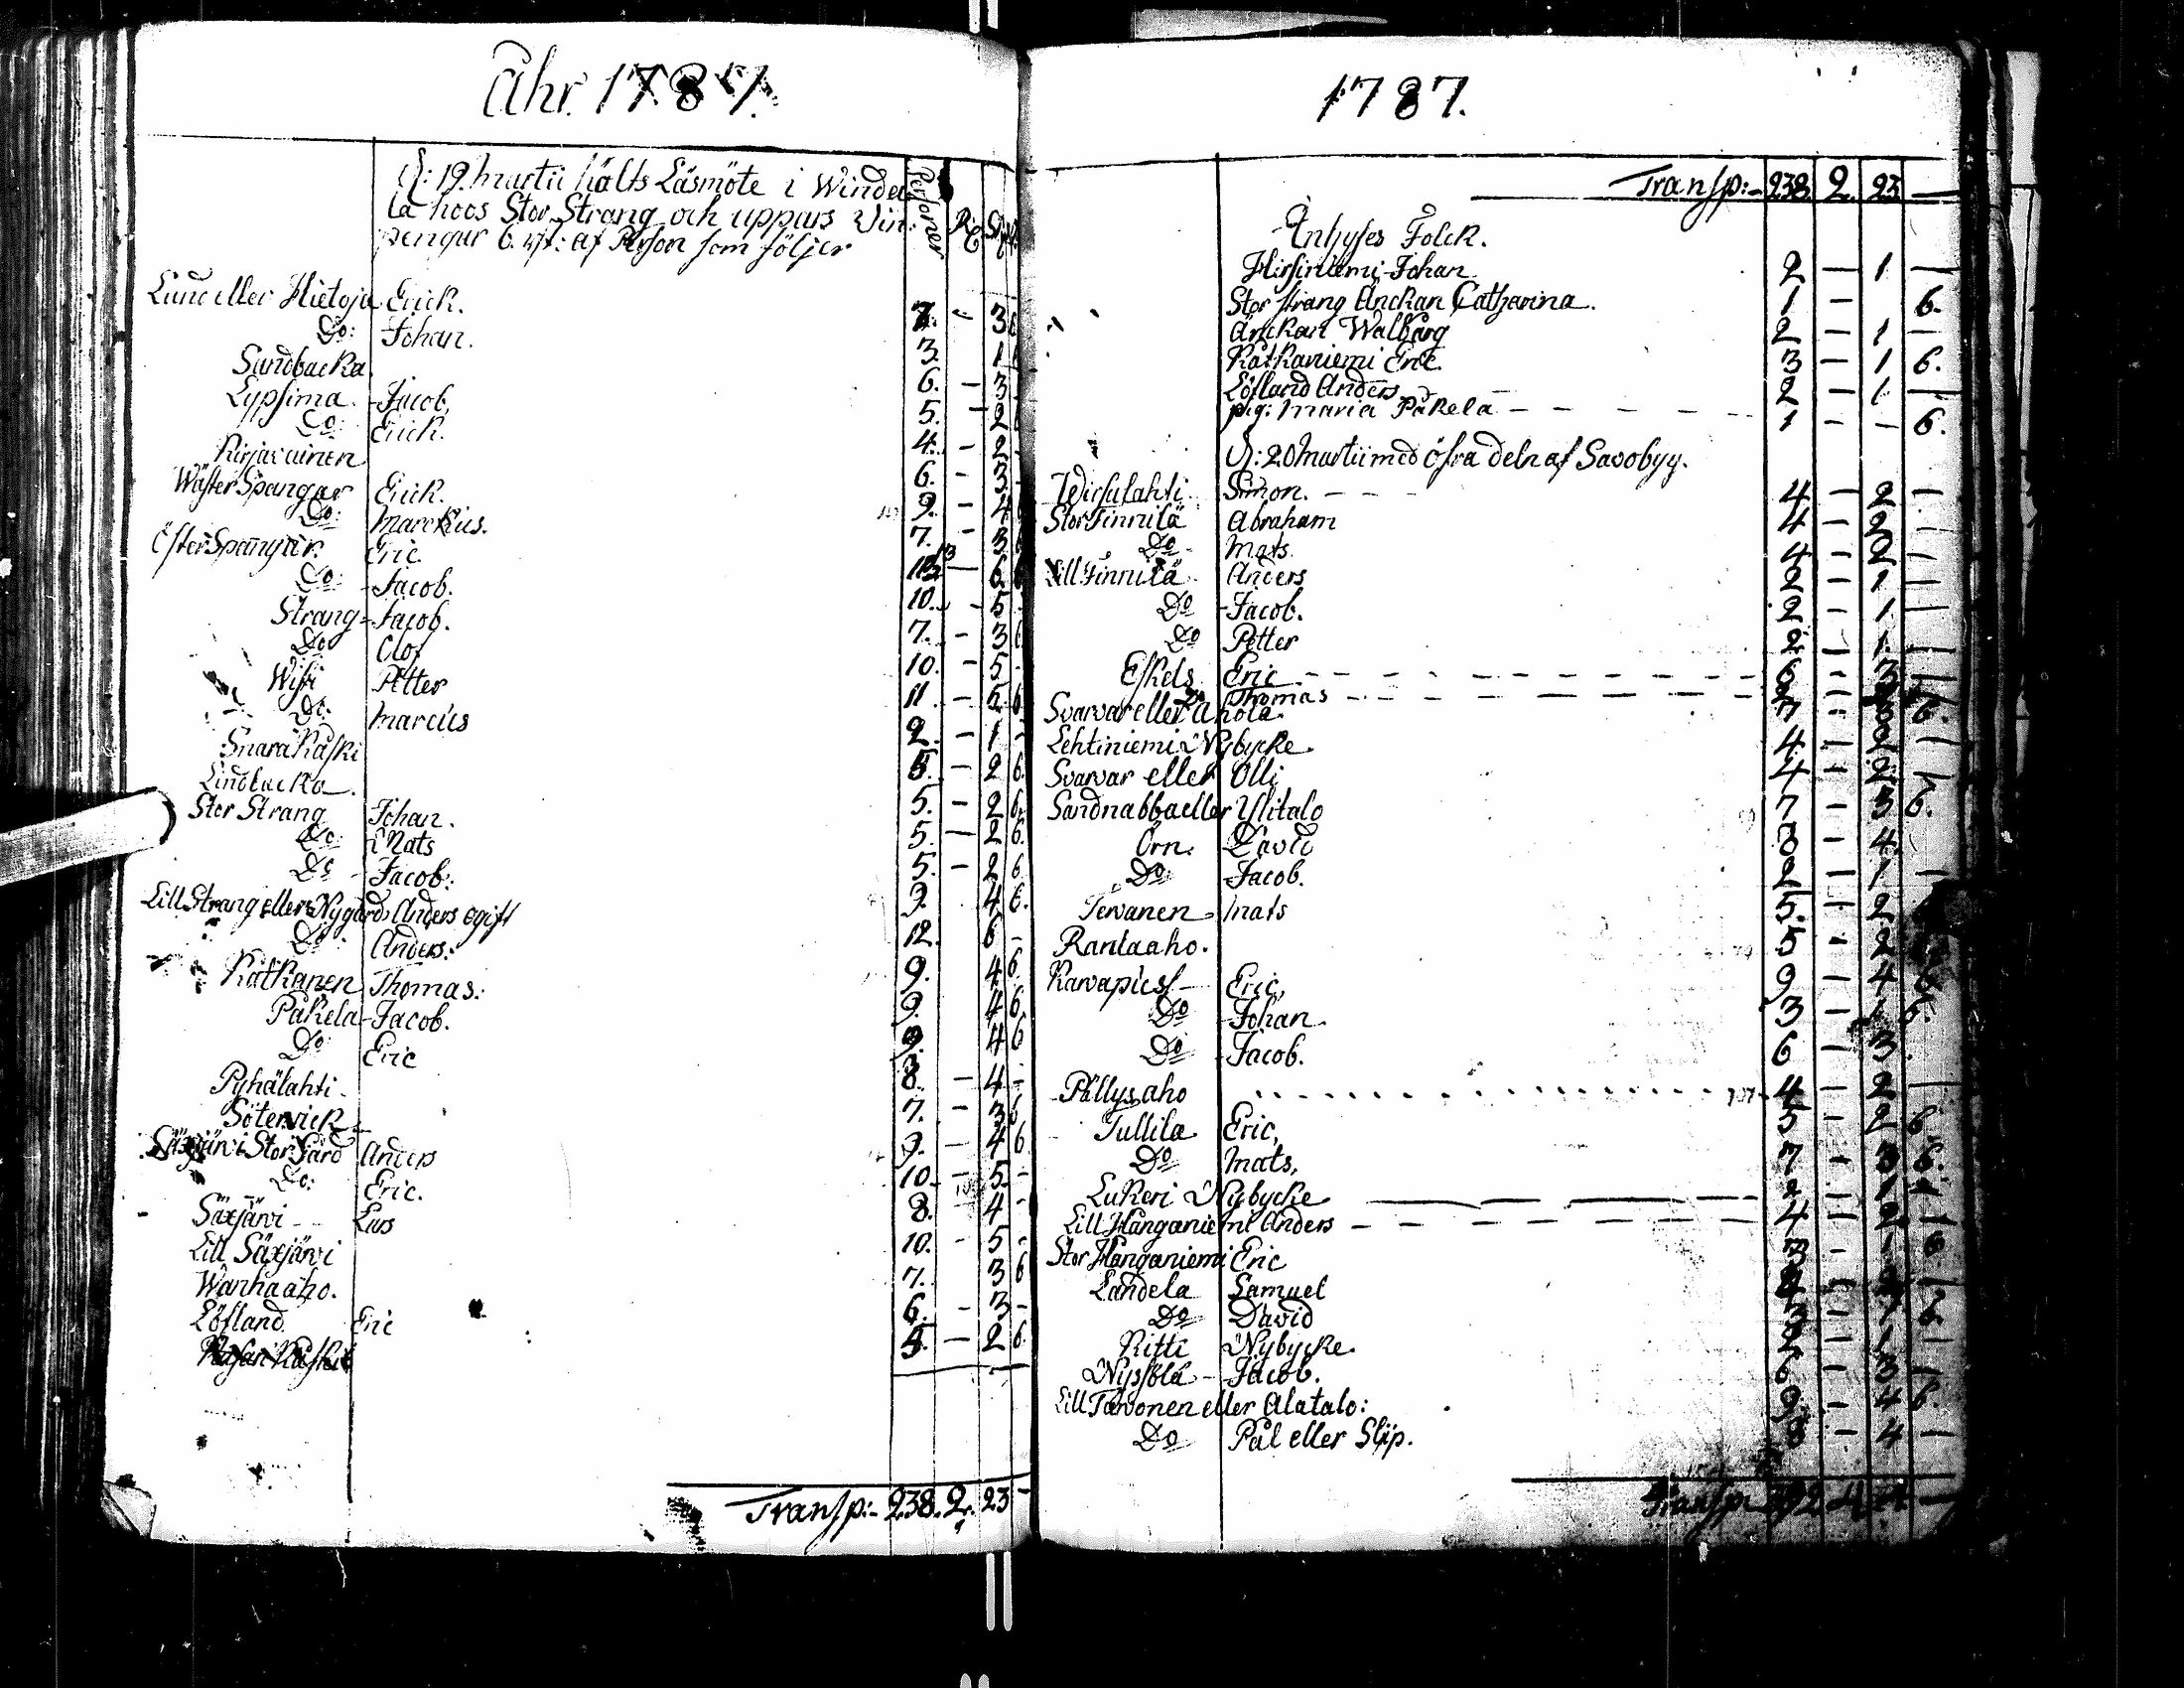 Åhr. 1787.
D: 19. Martii hölts Läsmöte i Windea
la hoos Stor Strang och uppars Vin:
pengar 6. rst: af Person som följer
Personer
Lund eller Hietoja Erick. 7. - 3 6
Do: Johan. 3. 1 6
Sandbacka 6. - 3
Lypsima. Jacob, 5. - 2 6
Do: Erick. 4. - 2 -
Kirjavainen 6. - 3. -
Wäster Spangar Erick. 9. - 4 6
Do: Marckus. 7. - 3 6
Öster Spangar. Eric 13 - 6 6
Do: Jacob. 10. - 5
Strang Jacob. 7. - 3 6
Do Olof 10. - 5 -
Wisi Petter 11. - 5 6
Do: Marcus 2. - 1 -
Snarakaski 5. - 2 6.
Lindbacka. 5. - 2 6.
Stor Strang Johan. 5. - 2 6.
Do: Mats 5. - 2 6
Do Jacob. 9. 4 6.
Lill Strang eller Nygård, Anders ogift
Do Anders. 12. 6 -
Katkanen Thomas. 9. 4 6.
Påkela Jacob. 9. 4 6
Do Eric 9. 4 6
Pyhälahti 8. - 4 -
Sötervick 7. - 3 6
Säxjärvi Stor Gård Anders 9. - 4 6
Do: Eric. 10. - 5. -
Säxjärvi - - Lars 8. 4 -
Lill Säxjärvi 10. - 5 -
Wanhaaho. 7. 3 6
Löfland Eric 6. - 3 -
5. - 2 6.
Transp:- 238. 2. 23 -
1787.
Transp:- 238. 2. 23 -
Inhyses Folck.
Hirsiniemi Johan 2 - 1. -
Stor strang Änckan Catharina. 1 - 6.
Änckan Walbarg 2 - 1 -
Katkaniemi Eric. 3 - 1 6.
Löfland Anders 2 - 1 -
pig: Maria Påkela - - - - 1 - - 6.
D: 20 Martii med öfra deln af Savobyy.
Wirsulahti Simon. - - - 4 - 2 -
Stor Finnilä Abraham 4 - 2 -
Do Mats. 4 - 2 -
Lill Finnilä Anders 2 - 1 -
Do Jacob. 2 - 1 -
Do Petter 2 - 1. -
Eskels Eric - - - - 6 - 3 -
Do Thomas - - - -
Svarvar eller Ahola. 7 - 3 6.
Lehtiniemi Nybycke. 4 - 2 -
Svarvar eller Olli 4 - 2 -
Sandnabba eller Ylitalo 7 - 3 6.
Örn. David 8 - 4.
Do Jacob. 2 - 1 -
Tervanen Mats 5. - 2
Rantaaho. 5 - 2
Karvapiess - Eric, 9 - 4
Do Johan. 3 - 1 6.
Do Jacob. 6 - 3.
Pällysaho 4 - 2 -
Tullila Eric, 5 - 2 6
Do Mats, 7 - 3 6.
Lukeri Nybycke 2 - 1 -
Lill Hanganiemi Anders - - - - 4 - 2 -
Stor Hanganiemi Eric 3 - 1 6
Landela Samuel
Do David
Ritti Nybycke. 2 - 1 -
Nyssölä - Jacob. 6 - 3 -
Lill Tarvonen eller Alatalo: 9 - 4 6.
Do Pål eller Slip. 8 - 4 -
Transp: